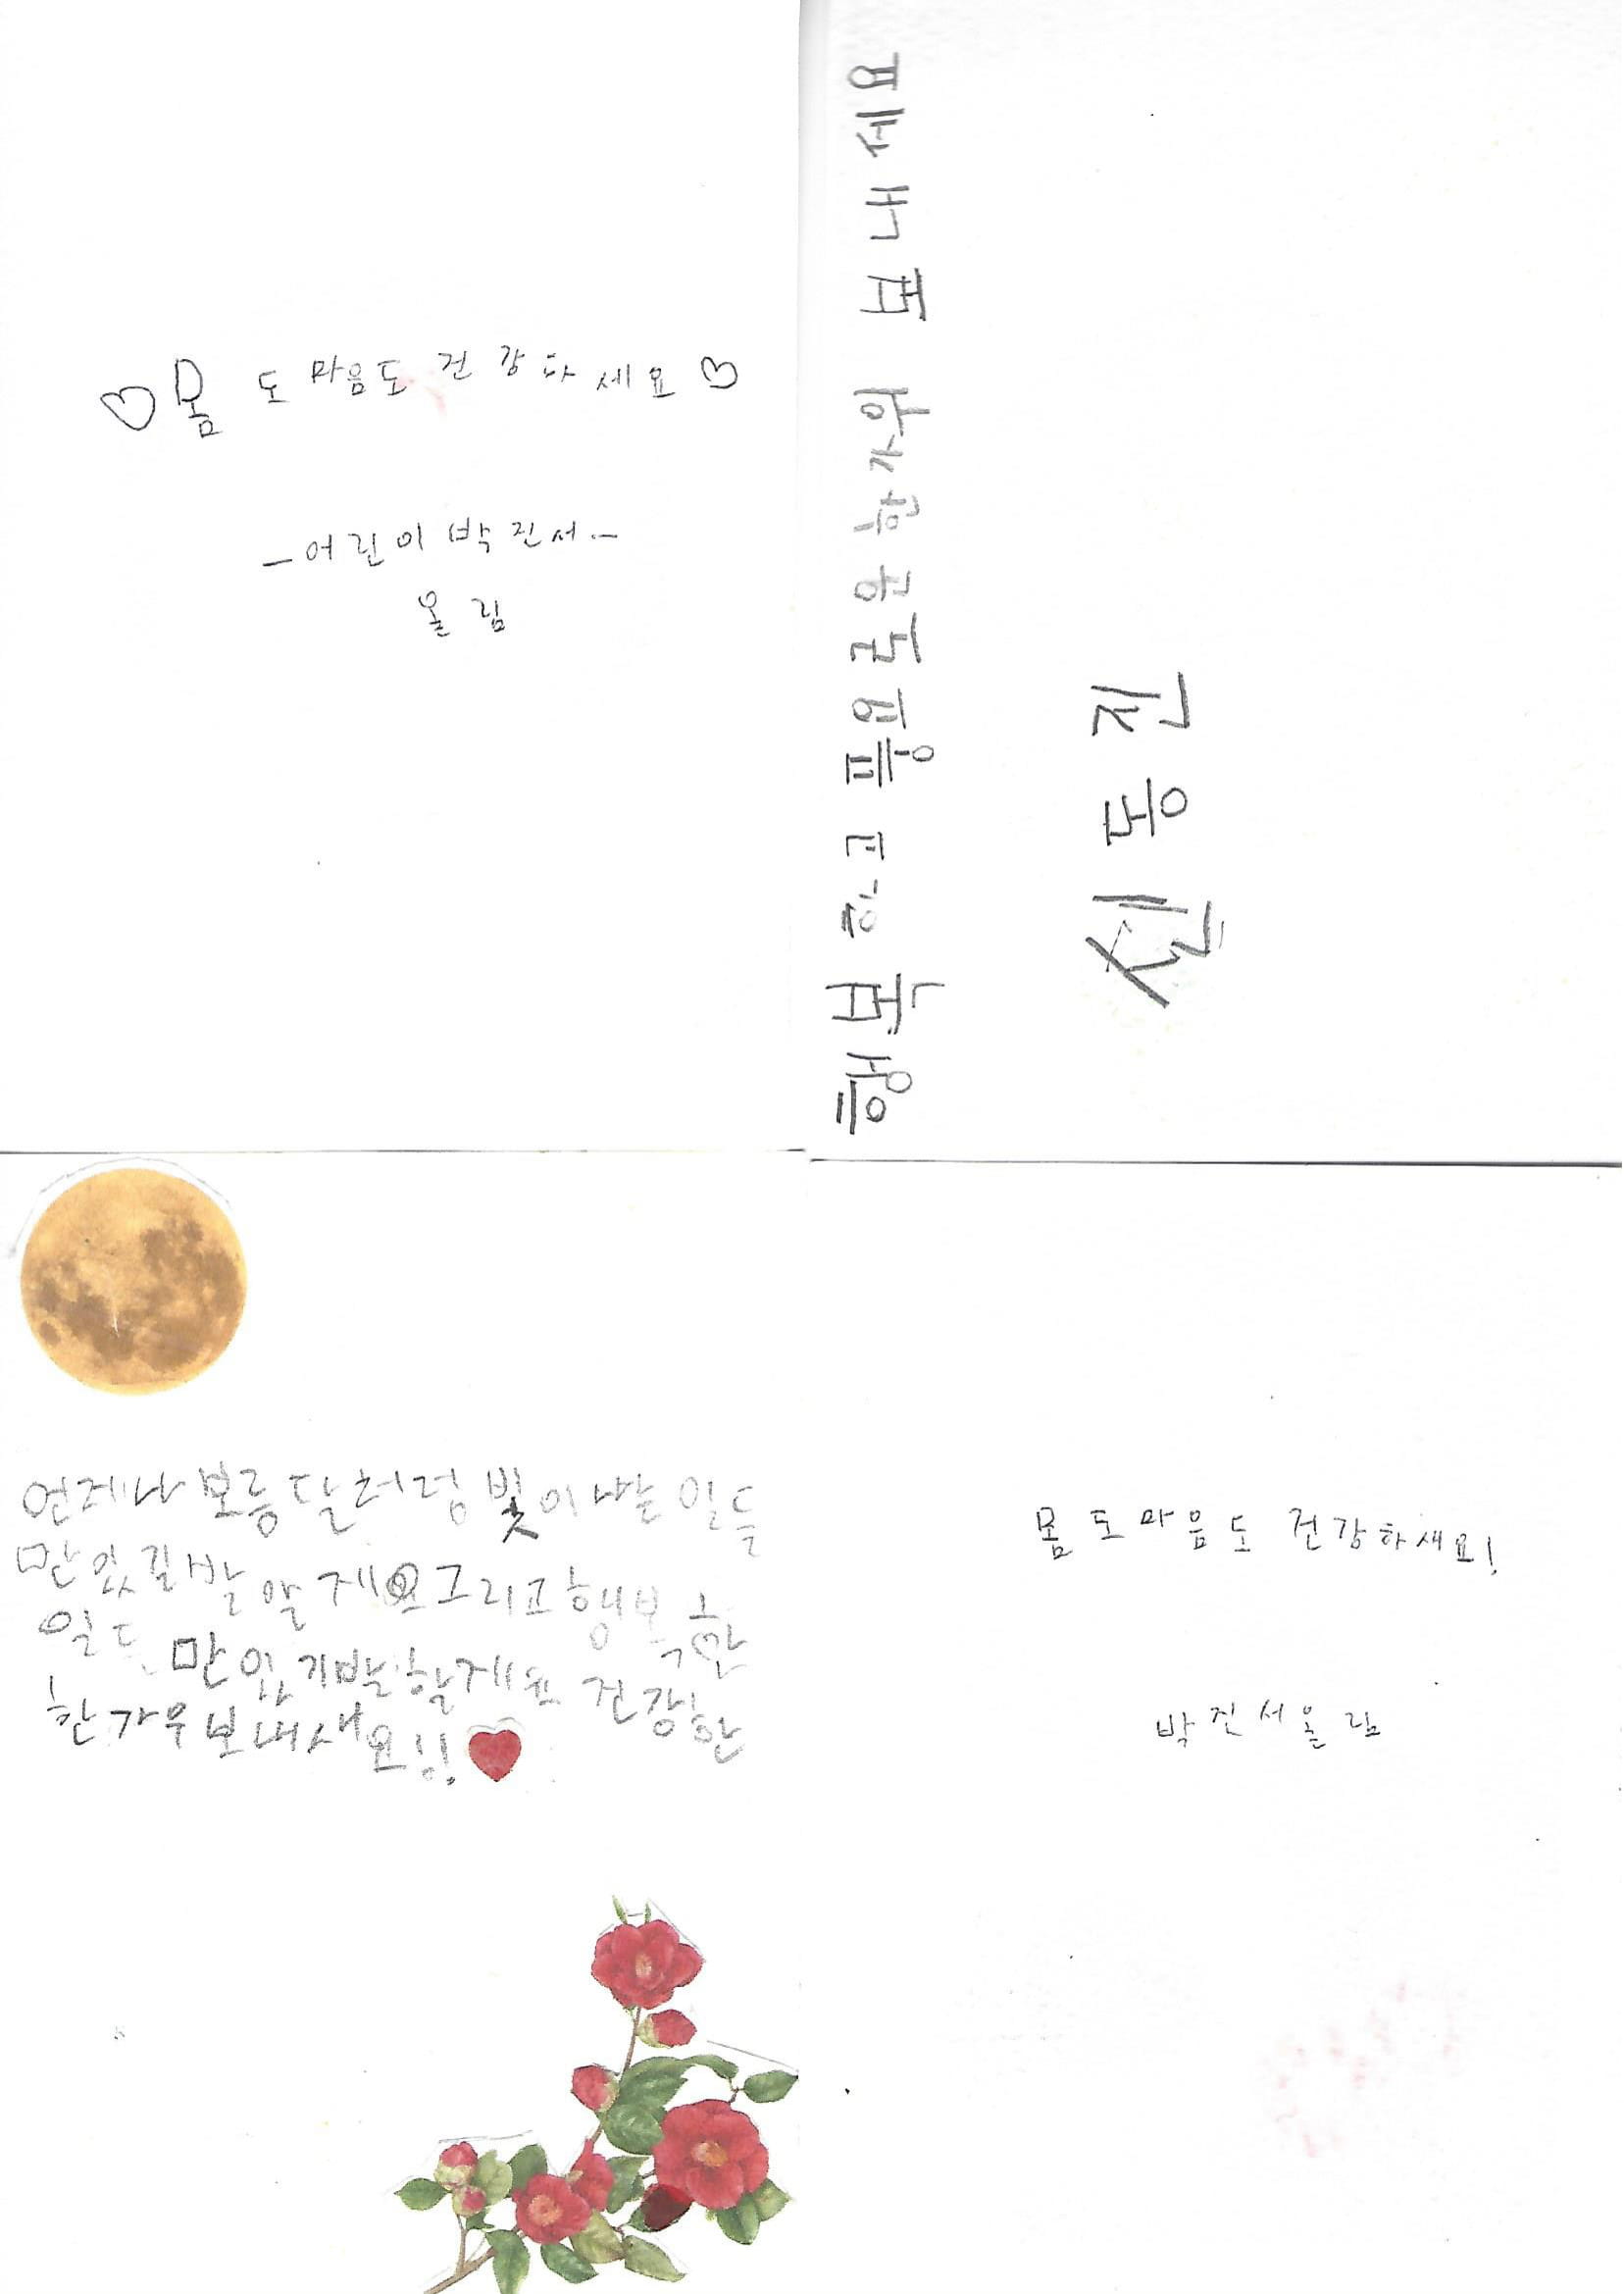 ♡몸도 마음도 건강하세요♡
-어린이 박진서-
올림
행복하고 풍요로운 한가위 보내세요
신동진
언제나 보름달처럼 빛이나는 일들
만 있길발알게요 그리고 행복한
일드 만 있기발할게요 건강한
한가우보내새요!!
몸도 마음도 건강하세요!
박진서올림